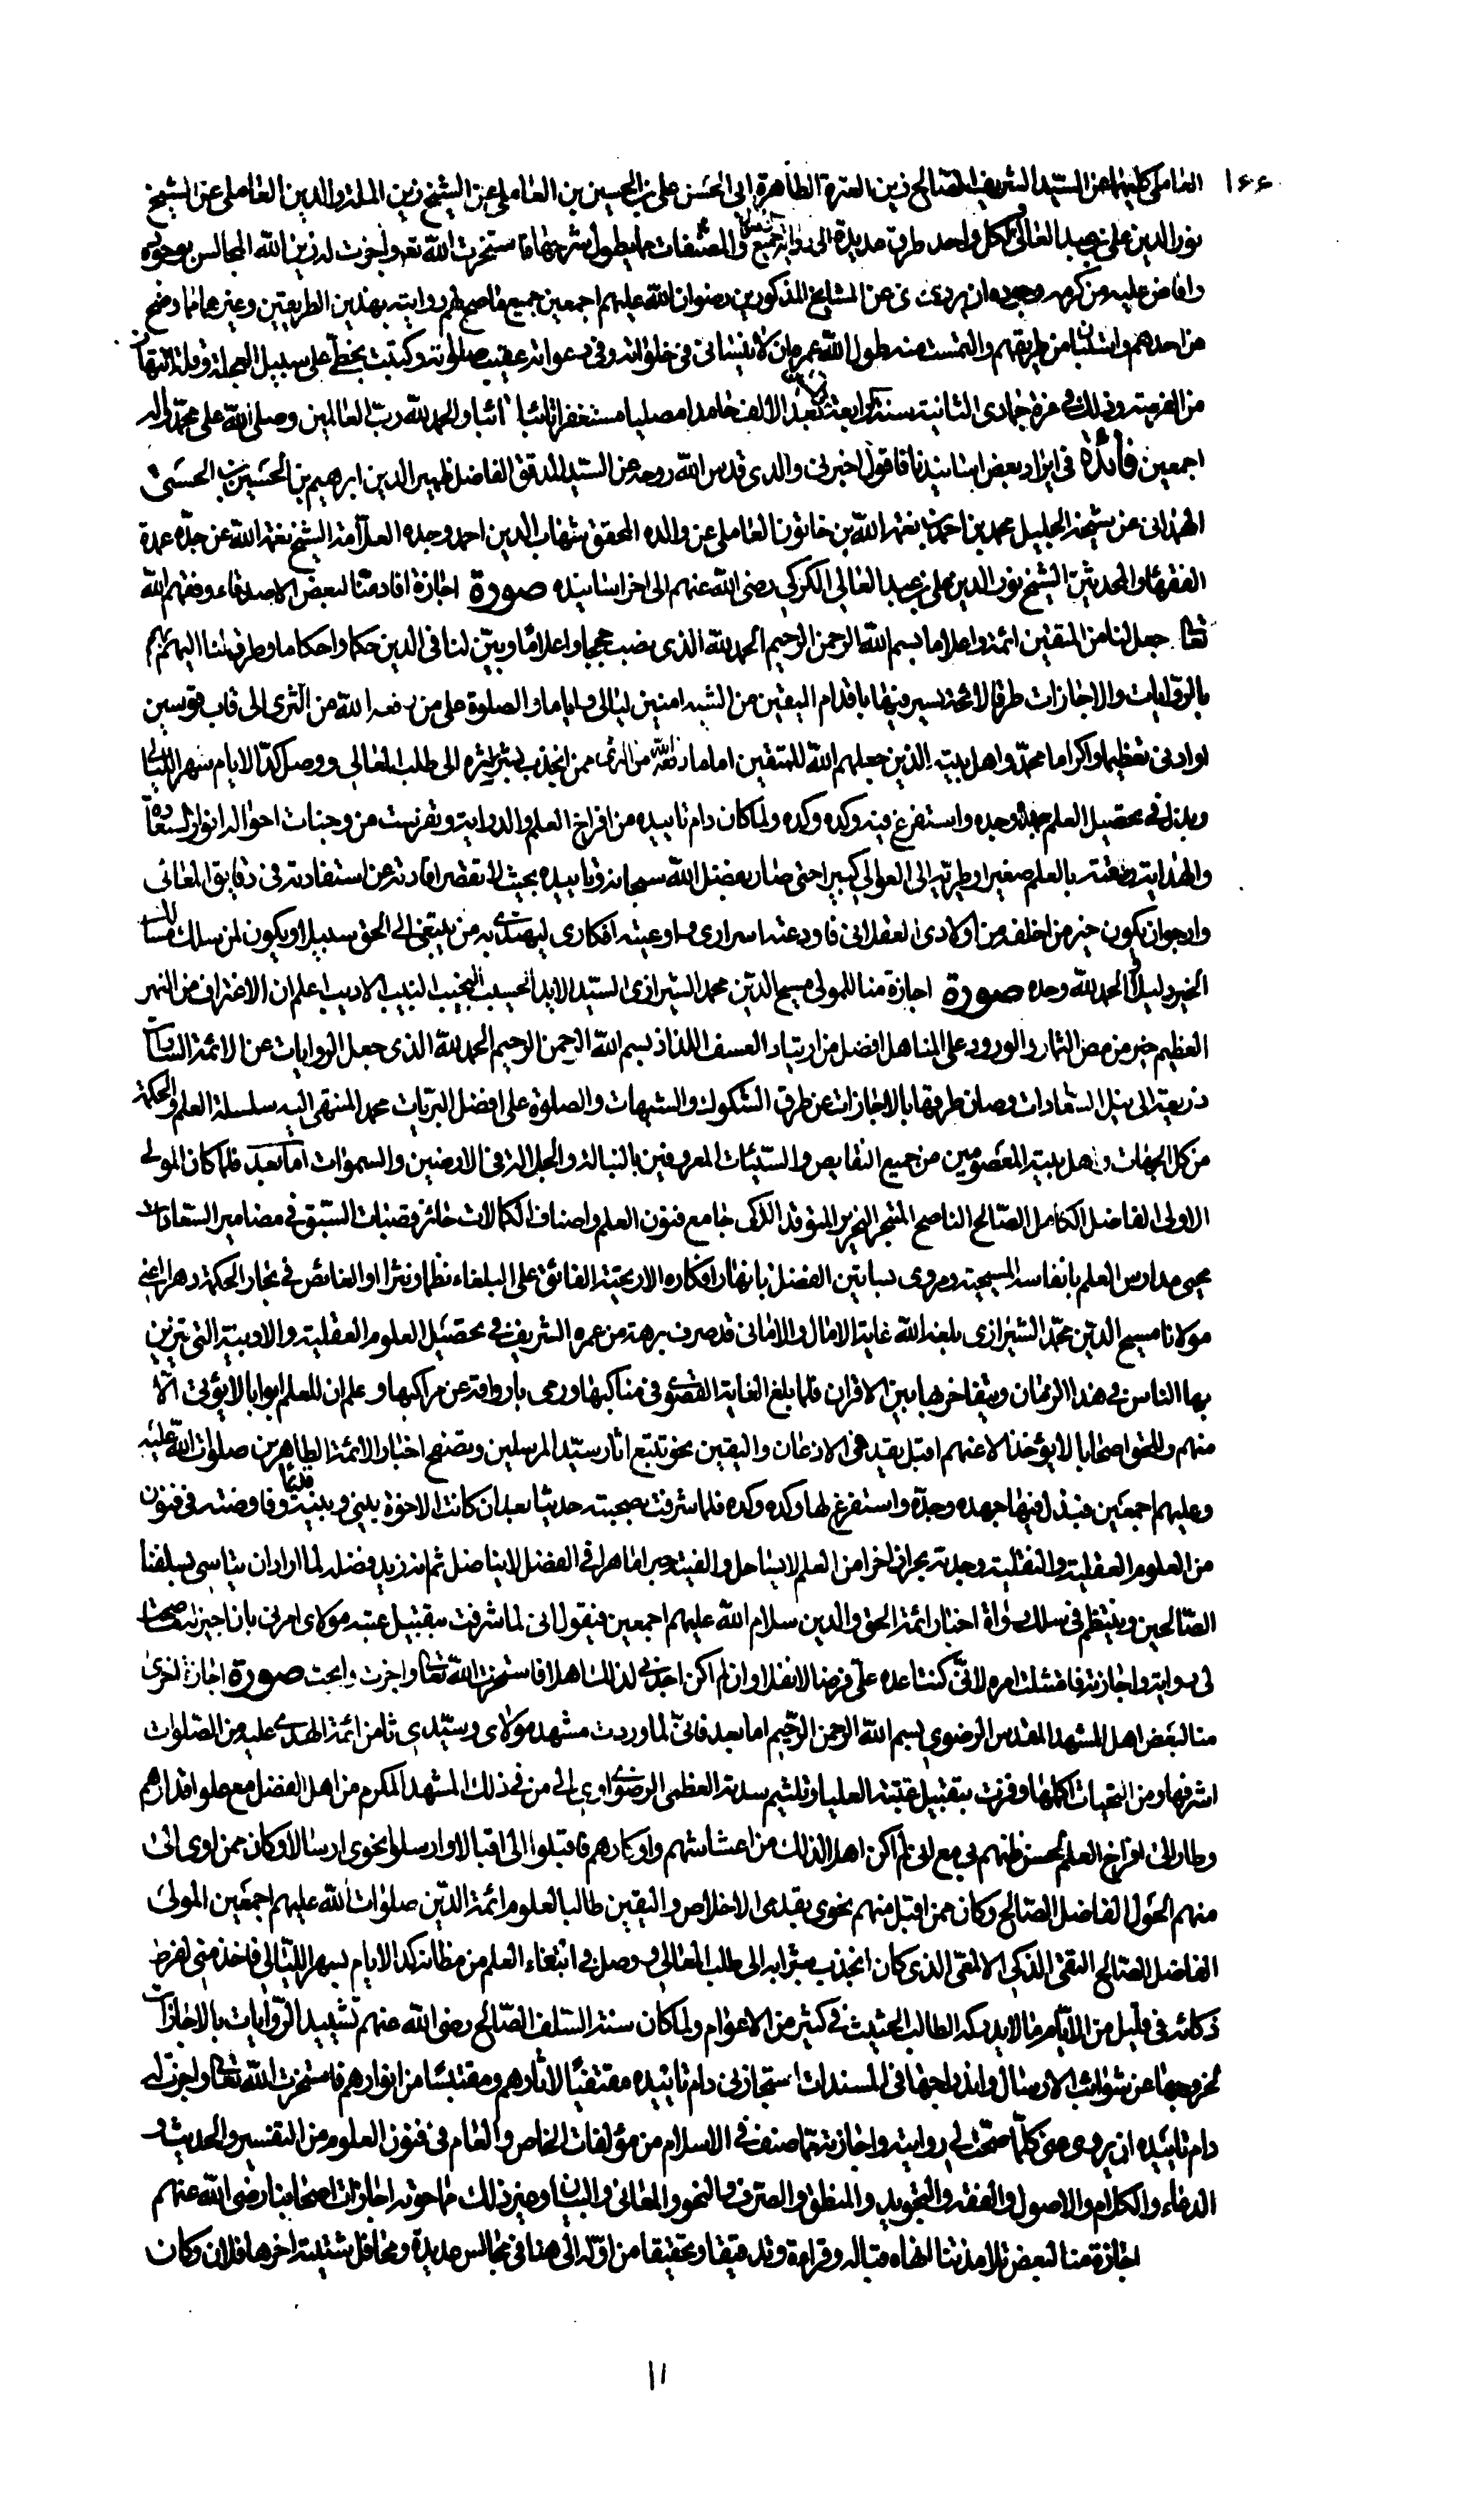 ١٦٤
العاملي كليهما عن السيد الشريف الصالح زين العترة الطاهرة ابي الحسن علي بن الحسين بن العاملي عن الشيخ زين الملة والدين العاملي عن الشيخ
نور الدين علي بن عبد العالي ولكل واحد طرق عديدة الى رواية جميع المصنفات مما يطول شرحها فاستخرت الله تعالى واجزت له زين الله المجالس بوجوده
وافاض عليه من كرمه وجوده ان يروى عني عن المشايخ المذكورين رضوان الله عليهم اجمعين جميع ما صح لهم روايته بهذين الطريقين وغيرهما مما وضح
من احدهم وانتسابنا من طريقهم والتمست منه طول الله عمره ان لا ينساني في خلواته وفي دعواته عقيب صلواته وكتبت بخطي على سبيل العجلة وقلة انتهاز
من الفرصة وذلك في غرة جمادى الثانية سنة رابعة بعد الالف حامدا مصليا مستغفرا تائبا ائبا والحمد لله رب العالمين وصلى الله على محمد واله
اجمعين فائدة في ايراد بعض اسانيدنا فاقول اخبرني والدى قدس الله روحه عن السيد المدقق الفاضل ظهير الدين ابرهيم بن الحسين الحسنى
الهمداني عن شيخه الجليل محمد بن احمد بن نعمة الله بن خاتون العاملي عن والده المحقق شهاب الدين احمد وجده العلامة الشيخ نعمة الله عن جده عمدة
الفقهاء والمحدثين الشيخ نور الدين علي بن عبد العالي الكركي رضى الله عنهم الى اخر اسانيده صورة اجازة افادمنا لبعض الاصدقاء وفقهم الله
تعالى جعل لنا من المتقين ائمة واعلاما بسم الله الرحمن الرحيم الحمد لله الذى نصب حججا واعلاما وبين لنا في الدين حكما واحكاما وطرق لنا اليهم
بالروايات والاجازات طرقا لائحة نسير فيها باقدام اليقين من الشبه امنين ليالى واياما والصلوة على من رفعه الله من الثرى الى قاب قوسين
او ادنى تعظيما واكراما محمد واهل بيته الذين جعلهم الله للمتقين اماما ممن انجذب بشراشره الى طلب المعالي ووصل كد الايام بسهر الليالي
وبذل في تحصيل العلم جهده وجده واستفرغ فيه وكده وكده ولما كان دام تاييده من افراخ العلم والدراية وتفرست من وجنات احواله انوار السعادة
والهداية وصنعته بالعلم صغيرا وطريه الى العوالي كبيرا حتى صار بفضل الله سبحانه وتاييده بحيث لا تقصر افادته عن استفادته في دقايق المعاني
وارجو ان يكون خير من اخلف من اولادى العقلاني فاودعته اسرارى واوعيته افكارى ليهتدى به من يبتغى الى الحق سبيلا ويكون لمن سلك مسالك
الخير دليلا والحمد لله وحده صورة اجازة منا للمولى مسيح الدين محمد الشيرازى السيد الايد الحسيب النجيب اللبيب الاديب اعلم ان الاغتراف من النهر
العظيم خير من مص الثمار والورود على المناهل افضل من ارتياد العسف بسم الله الرحمن الرحيم الحمد لله الذى جعل الروايات عن الائمة السادات
ذريعة الى نيل السعادات وصان طرقها بالاجازات عن طرق الشكوك والشبهات والصلوة على افضل البريات محمد المنتهى اليه سلسلة العلم والحكمة
من كل الجهات واهل بيته المعصومين من جميع النقايص والسيئات المعروفين بالنبالة والجلالة في الارضين والسموات اما بعد فلما كان المولى
الاولى الفاضل الكامل الصالح الناصح المتبحر النحرير المتوقد الذكى جامع فنون العلم واصناف الكمالات حائز قصبات السبق في مضامير السعادات
محيى مدارس العلم بانفاسه المسيحية ومروى بساتين الفضل بانهار افكاره الاريحية الفائق على البلغاء نظما ونثرا والغائص في بحار الحكمة دهرا اعنى
مولانا مسيح الدين محمد الشيرازى بلغه الله غاية الامال والاماني قد صرف برهة من عمره الشريف في تحصيل العلوم العقلية والادبية التي يتزين
بها الناس في هذا الزمان ويتفاخر بها بين الاقران فلما بلغ الغاية القصوى في مناكبها ورمى باروقته عن مراكبها وعلم ان للعلم ابوابا لا يؤتى الا
منهم وللحق اصحابا لا يؤخذ الا عنهم اقبل بقدمى الاذعان واليقين نحو تتبع اثار سيد المرسلين وتصفح اخبار الائمة الطاهرين صلوات الله عليه
وعليهم اجمعين فبذل فيها جهده وجده واستفرغ لها وكده وكده فلما شرفت بصحبته حديثا بعد ان كانت الاخوة بيني وبينه قديما وفاوضته في فنون
من العلوم العقلية والنقلية وجدته بحرا زاخرا من العلم لا يساحل والفيته حبرا ماهرا في الفضل لا يناضل ثم انه زيد فضله لما اراد ان يتاسى بسلفنا
الصالحين وينتظم في سلك رواة اخبار ائمة الحق والدين سلام الله عليهم اجمعين فيقول اني لما شرفت بتقبيل عتبة مولاى امرني بان اجيز له ما صحت
لى روايته واجازته فامتثلت امره لانى كنت اعده على فرضا لا نفلا وان لم اكن اجدني لذلك اهلا فاستخرت الله تعالى واجزت وابحت صورة اجازة اخرى
منا لبعض اهل المشهد المقدس الرضوى بسم الله الرحمن الرحيم اما بعد فاني لما وردت مشهد مولاى وسيدى ثامن ائمة الهدى عليه من الصلوات
اشرفها ومن التحيات اكملها وفزت بتقبيل عتبته العليا وتلثيم سدته العظمى الرضوى اوى الى من في ذلك المشهد المكرم من اهل الفضل مع علو اقدارهم
وطار الى افراخ العلم لحسن ظنهم بى مع انى لم اكن اهلا لذلك من اعشاشهم واوكارهم فاقبلوا الى اقبالا وارسلوا نحوى ارسالا وكان ممن اوى الى
منهم الفاضل الصالح وكان ممن اقبل منهم نحوى بقدمى الاخلاص واليقين طالبا لعلوم ائمة الدين صلوات الله عليهم اجمعين المولى
الفاضل الصالح التقى الذكى الالمعى الذى كان انجذب بشراشره الى طلب المعالى ووصل في ابتغاء العلم من مظانه كد الايام بسهر الليالى فاخذ منى لفرط
ذكائه في قليل من الايام ما لا يدركه الطالب الحثيث في كثير من الاعوام ولما كان سنة السلف الصالح رضى الله عنهم تشييد الروايات بالاجازات
لخروجها عن شوائب الارسال واندراجها في المسندات استجازنى دام تاييده مقتفيا لاثارهم ومقتبسا من انوارهم فاستخرت الله تعالى واجزت له
دام تاييده ان يروى عنى كلما صحت لى روايته واجازته مما صنف في الاسلام من مؤلفات الخاص والعام في فنون العلوم من التفسير والحديث و
الدعاء والكلام والاصول والفقه والتجويد والمنطق والصرف والنحو والمعاني والبيان وغير ذلك مما حوته اجازات اصحابنا رضى الله عنهم
اجازة منا لبعض تلامذتنا انهاه قباله وقراءة وتدقيقا وتحقيقا من اوله الى هنا في مجالس عديدة ومحافل شتيتة اخرها فلان وكان
١١